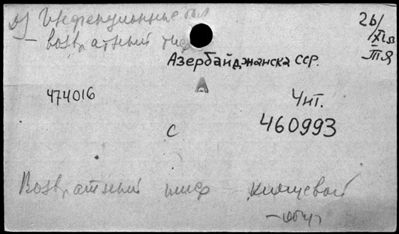 Инфекционные бол
— возвратный тиф
26/
XI
Азербайджанска ССР.
А
474016
Чит.
с
460993
Возвратный тиф клещевой